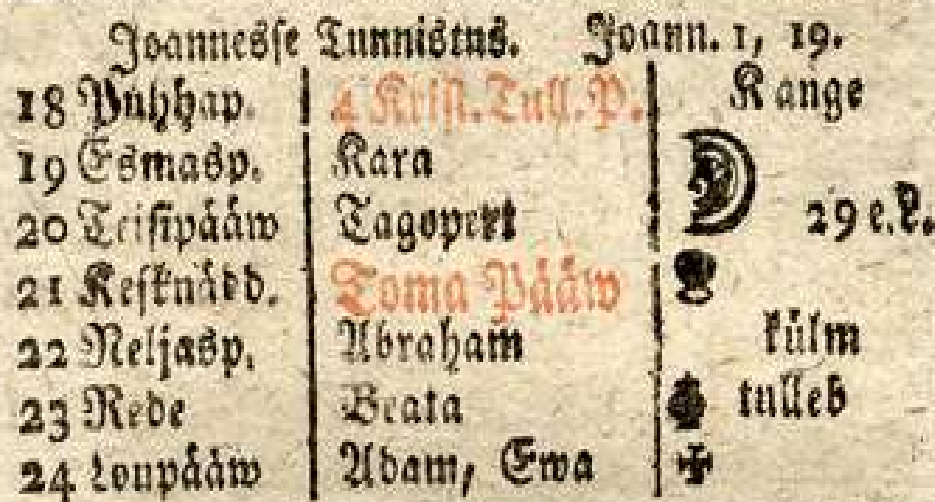 Joannesse Tunnistus. Joann. 1, 19.
18 Pühhap. 4 Krist. Tull. P. Kange
19 Esmasp. Kara
20 Teisipääw Tagopert 29 e.k.
21 Kesknädd. Toma Pääw
22 Neljasp. Abraham külm
23 Rede Beata tulleb
24 Loupääw Adam, Ewa